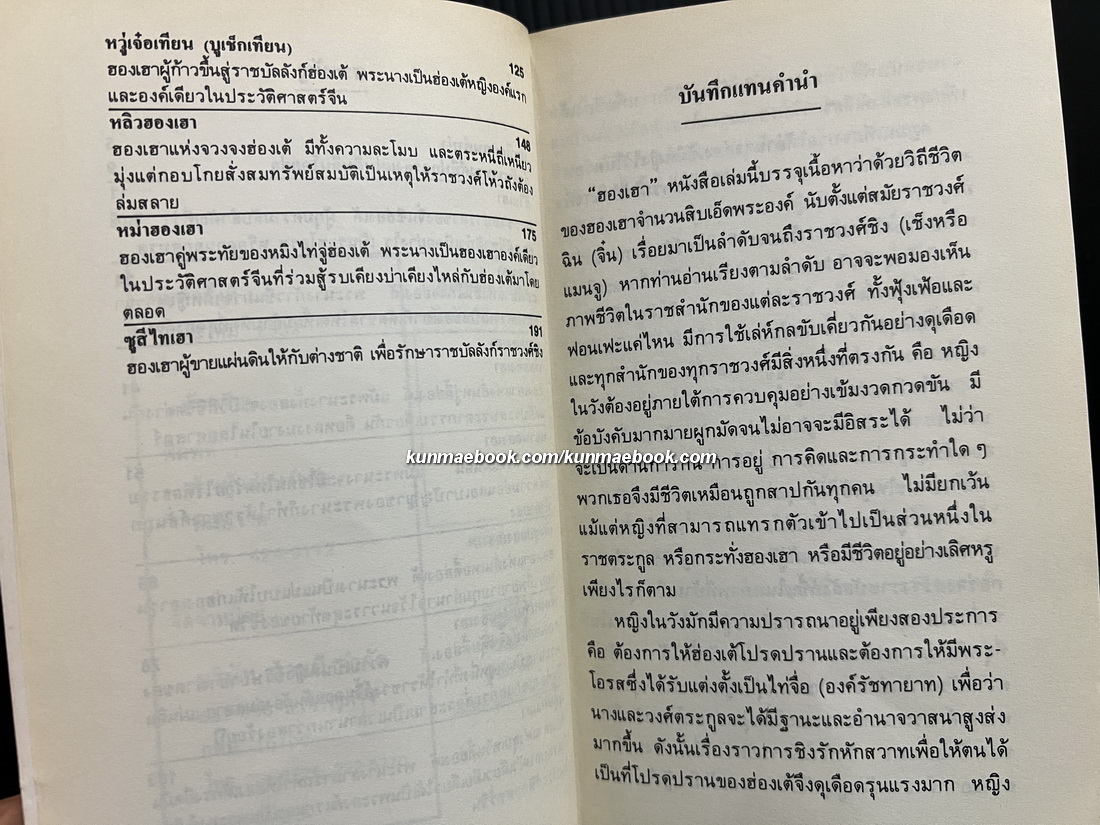 หวู่เจ๋อเทียน (บูเช็กเทียน)
125
ฮองเฮาผู้ก้าวขึ้นสู่ราชบัลลังก์ฮ่องเต้ พระนางเป็นฮ่องเต้หญิงองค์แรก
และองค์เดียวในประวัติศาสตร์จีน
หลิวฮองเฮา
148
ฮองเฮาแห่งจวงจงฮ่องเต้ มีทั้งความละโมบ และตระหนี่ถี่เหนียว
มุ่งแต่กอบโกยสั่งสมทรัพย์สมบัติเป็นเหตุให้ราชวงศ์โห้วถังต้อง
ล่มสลาย
หม่าฮองเฮา
175
ฮองเฮาคู่พระทัยของหมิงไท่จู่ฮ่องเต้ พระนางเป็นฮองเฮาองค์เดียว
ในประวัติศาสตร์จีนที่ร่วมสู้รบเคียงบ่าเคียงไหล่กับฮ่องเต้มาโดย
ตลอด
ซูสีไทเฮา
191
ฮองเฮาผู้ขายแผ่นดินให้กับต่างชาติ เพื่อรักษาราชบัลลังก์ราชวงศ์ชิง
บันทึกแทนคำนำ
“ฮองเฮา” หนังสือเล่มนี้บรรจุเนื้อหาว่าด้วยวิถีชีวิต
ของฮองเฮาจำนวนสิบเอ็ดพระองค์ นับตั้งแต่สมัยราชวงศ์
ฉิน (จิ๋น) เรื่อยมาเป็นลำดับจนถึงราชวงศ์ชิง (เช็งหรือ
แมนจู) หากท่านอ่านเรียงตามลำดับ อาจจะพอมองเห็น
ภาพชีวิตในราชสำนักของแต่ละราชวงศ์ ทั้งฟุ้งเฟ้อและ
ฟอนเฟะแค่ไหน มีการใช้เล่ห์กลขับเคี่ยวกันอย่างดุเดือด
และทุกสำนักของทุกราชวงศ์มีสิ่งหนึ่งที่ตรงกัน คือ หญิง
ในวังต้องอยู่ภายใต้การควบคุมอย่างเข้มงวดกวดขัน มี
ข้อบังคับมากมายผูกมัดจนไม่อาจจะมีอิสระได้ ไม่ว่า
kunmaebook.com/kunmaebook.com
จะเป็นด้านการกิน การอยู่ การคิดและการกระทำใด ๆ
พวกเธอจึงมีชีวิตเหมือนถูกสาปกันทุกคน ไม่มียกเว้น
แม้แต่หญิงที่สามารถแทรกตัวเข้าไปเป็นส่วนหนึ่งใน
ราชตระกูล หรือกระทั่งฮองเฮา หรือมีชีวิตอยู่อย่างเลิศหรู
เพียงไรก็ตาม
หญิงในวังมักมีความปรารถนาอยู่เพียงสองประการ
คือ ต้องการให้ฮ่องเต้โปรดปรานและต้องการให้มีพระ-
โอรสซึ่งได้รับแต่งตั้งเป็นไท่จื่อ (องค์รัชทายาท) เพื่อว่า
นางและวงศ์ตระกูลจะได้มีฐานะและอำนาจวาสนาสูงส่ง
มากขึ้น ดังนั้นเรื่องราวการชิงรักหักสวาทเพื่อให้ตนได้
เป็นที่โปรดปรานของฮ่องเต้จึงดุเดือดรุนแรงมาก หญิง